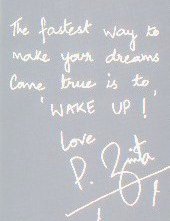 The fastest way to
make your dreams
Come true is to
'WAKE UP!'
love
P. Zinta